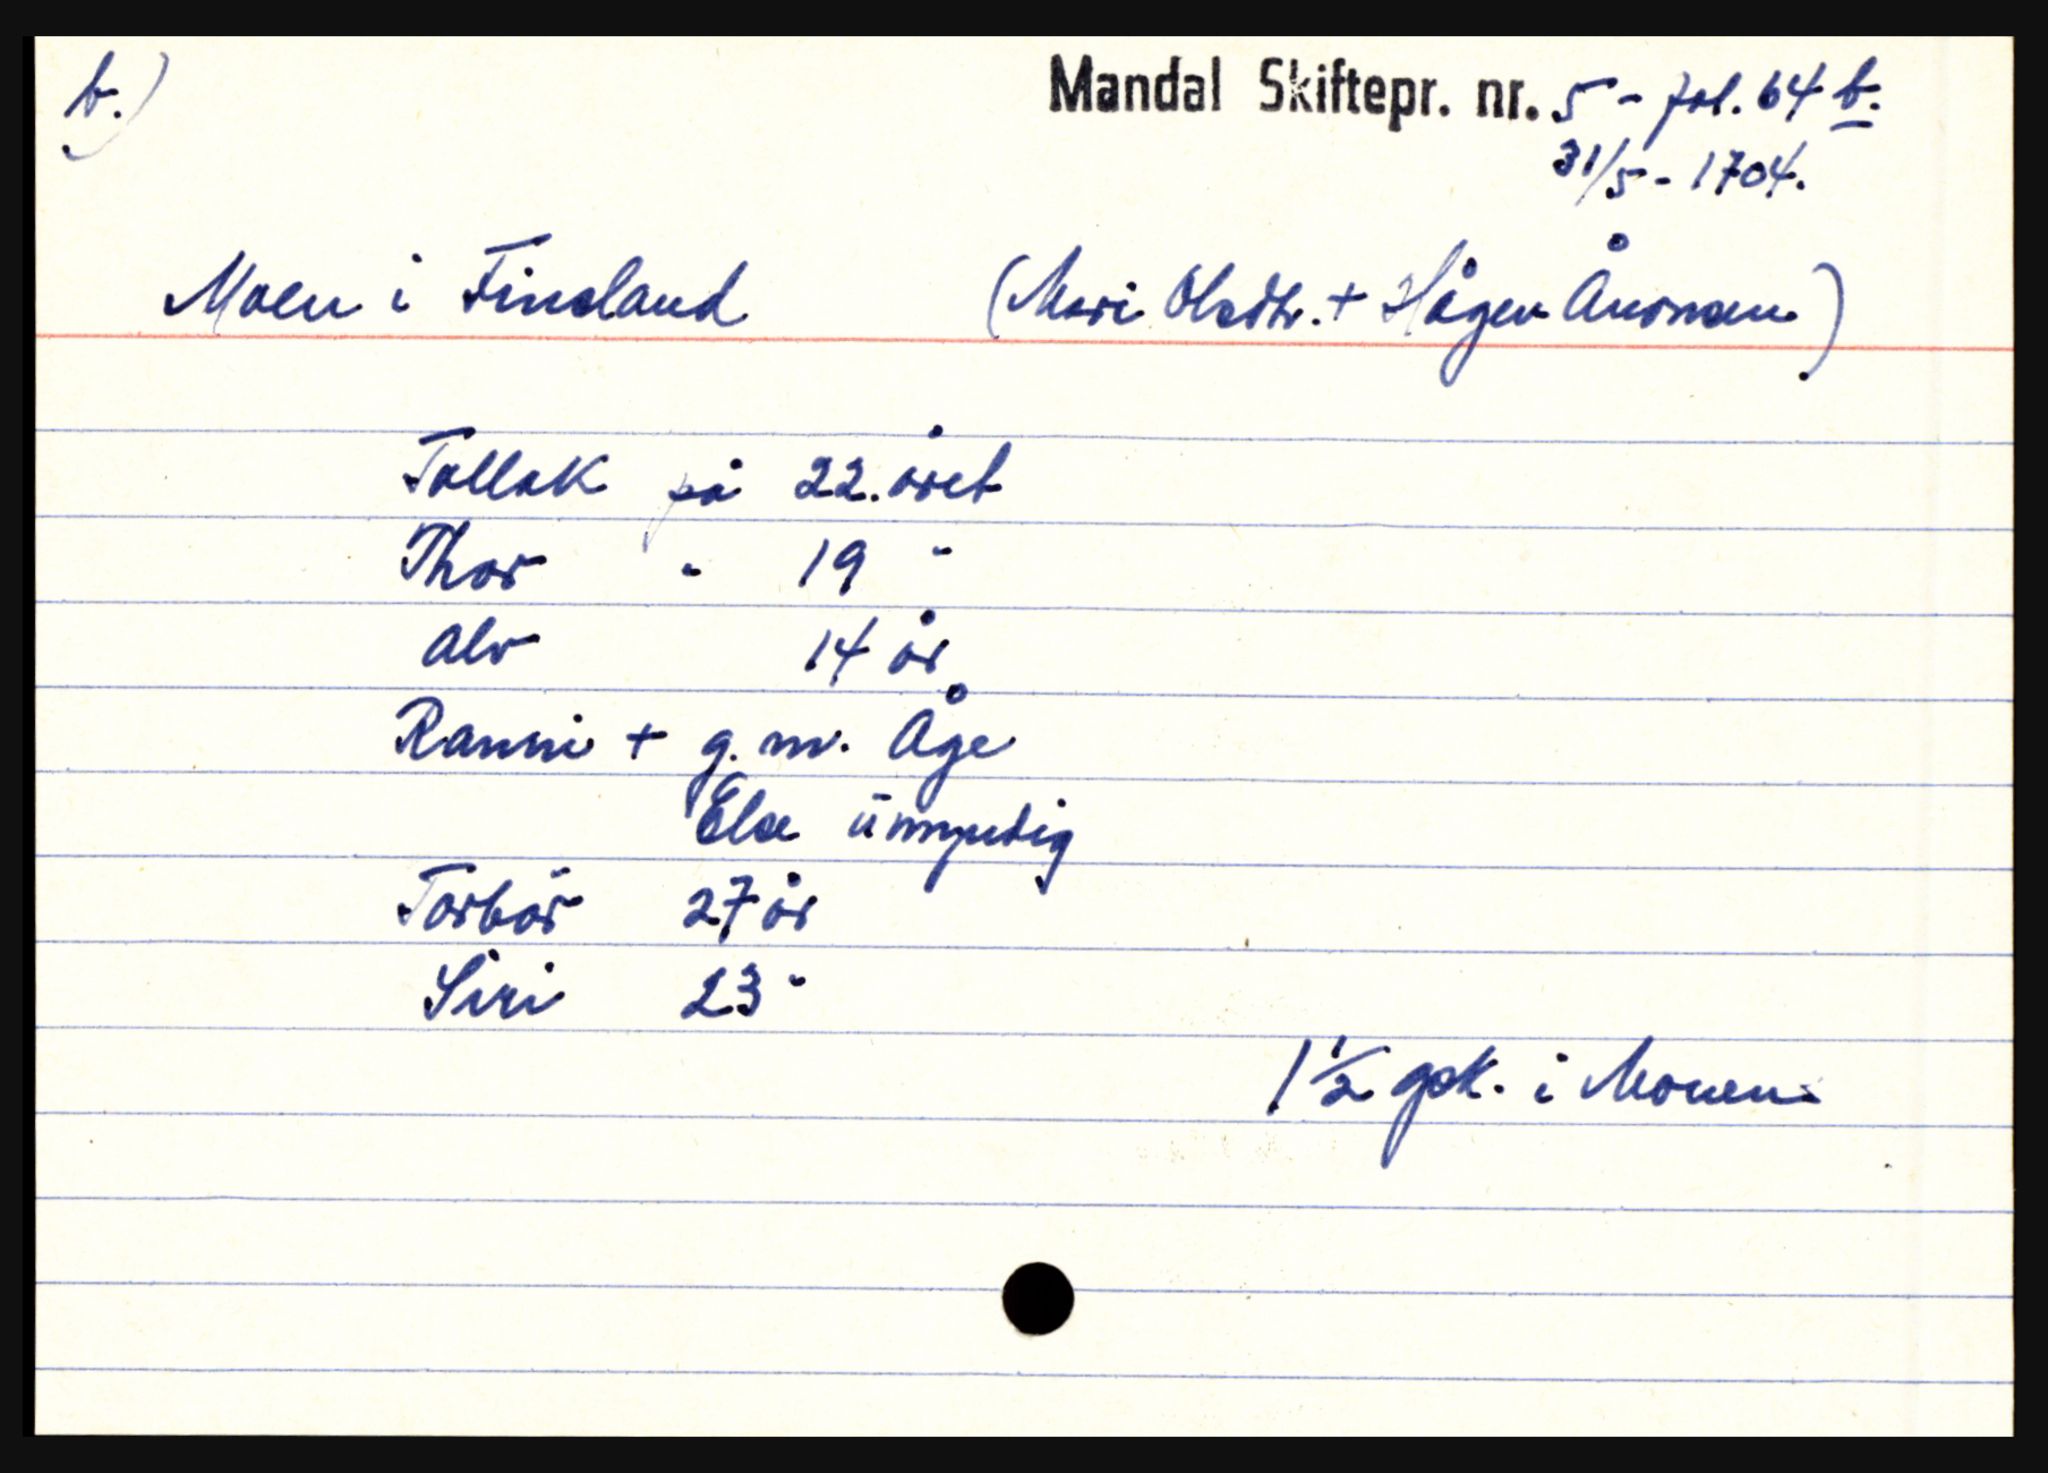 b.)
Mandal Skiftepr. nr. 5 - fol. 64 b.
31/5 - 1704.
Moen i Finsland (Mari Olsdtr. + Hågen Ånonsen)
Tallak på 22. året
Thor " 19 "
Alv 14 år
Ranni + g. m. Åge
Else ūmyndig
Torbör 27 år
Siri 23 "
1 1/2 gsk. i Monen.